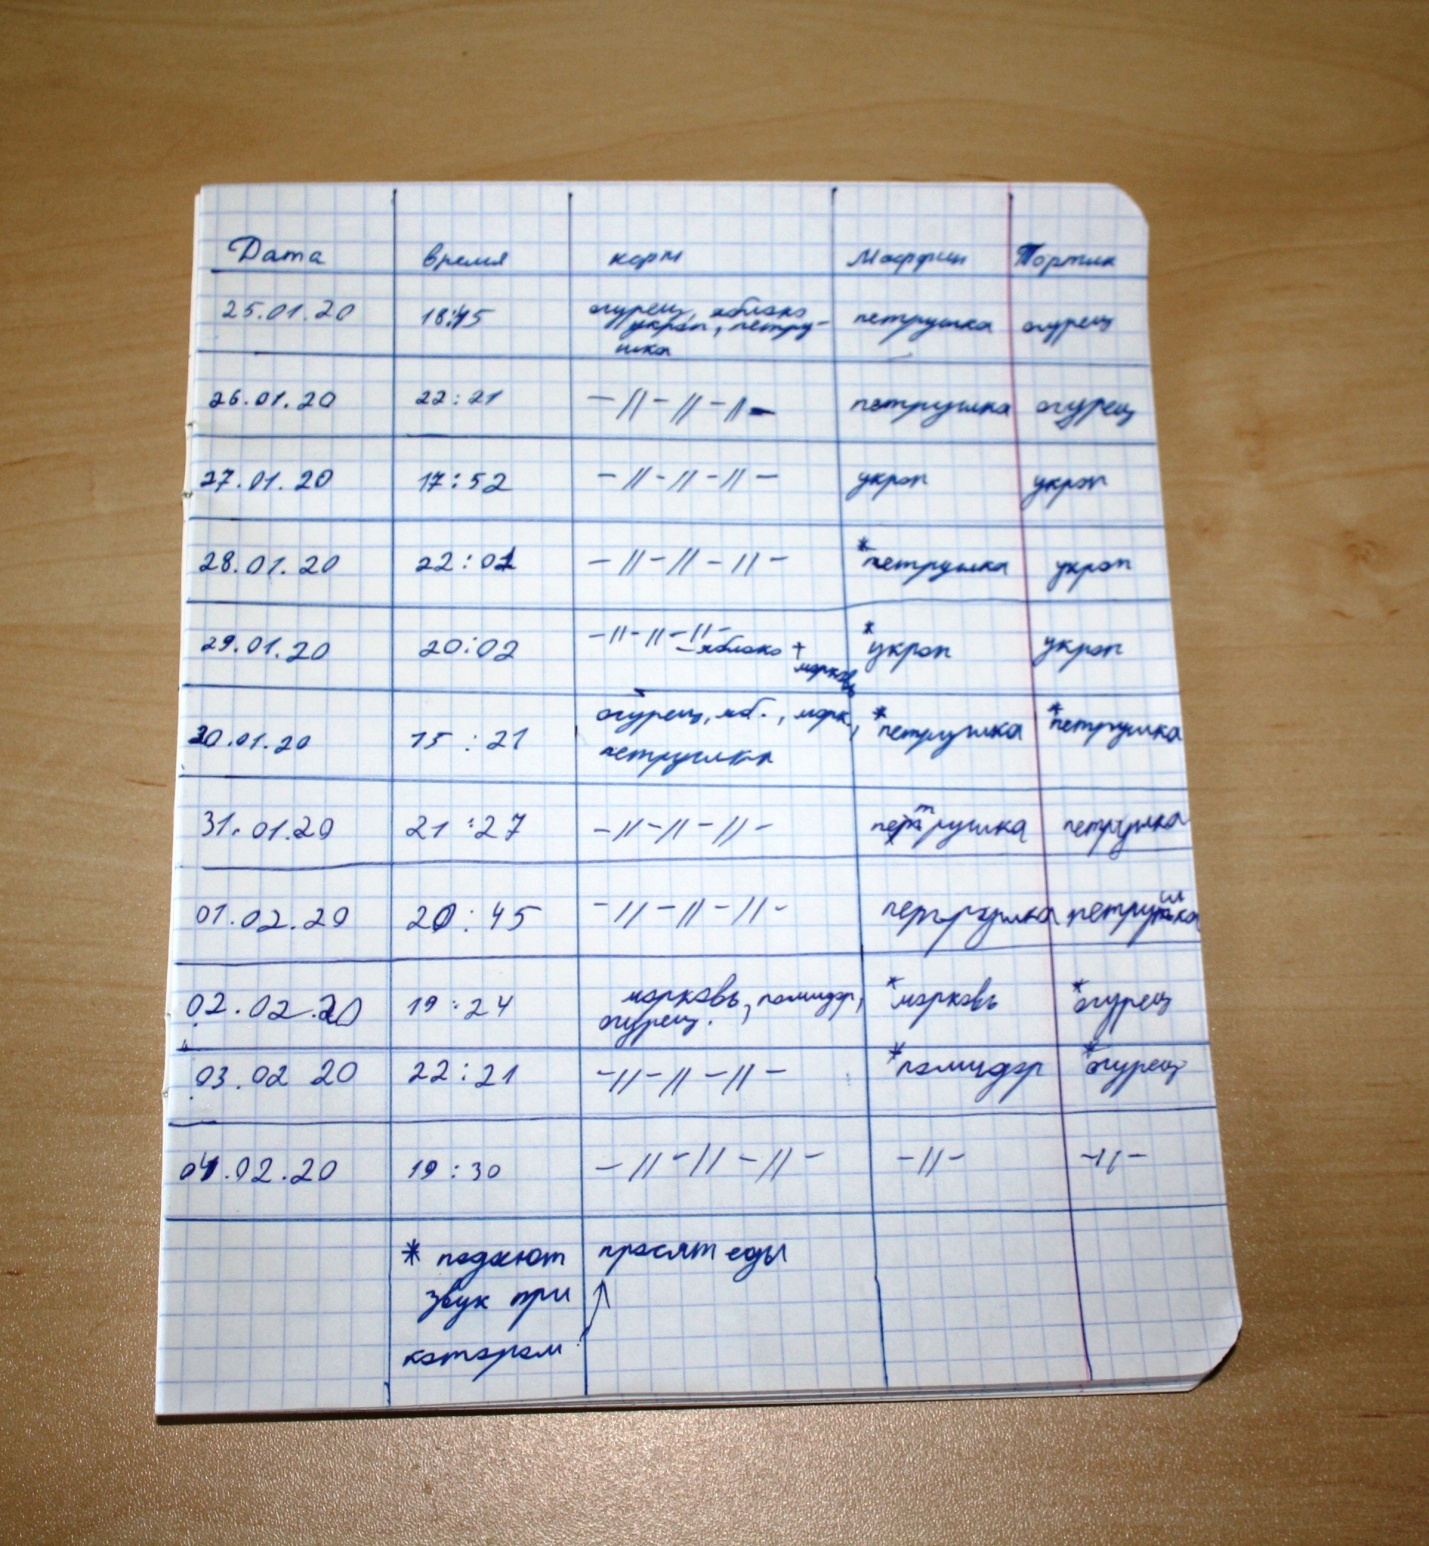 Дата время корм Маффин Тортик
25.01.20 18:45 огурец, яблоко петрушка огурец
укроп, петру-
шка
26.01.20 22:21 –//–//–//– петрушка огурец
27.01.20 17:52 –//–//–//– укроп укроп
28.01.20 22:01 –//–//–//– *петрушка укроп
29.01.20 20:02 –//–//–//– *укроп укроп
–яблоко +
морковь
30.01.20 15:21 огурец, яб., морк., *петрушка *петрушка
петрушка
31.01.20 21:27 –//–//–//– петрушка петрушка
01.02.20 20:45 –//–//–//– петрушка петрушка
02.02.20 19:24 морковь, помидор, *морковь *огурец
огурец.
03.02 20 22:21 –//–//–//– *помидор *огурец
04.02.20 19:30 –//–//–//– –//– –//–
* подают просят еды
звук при
котором